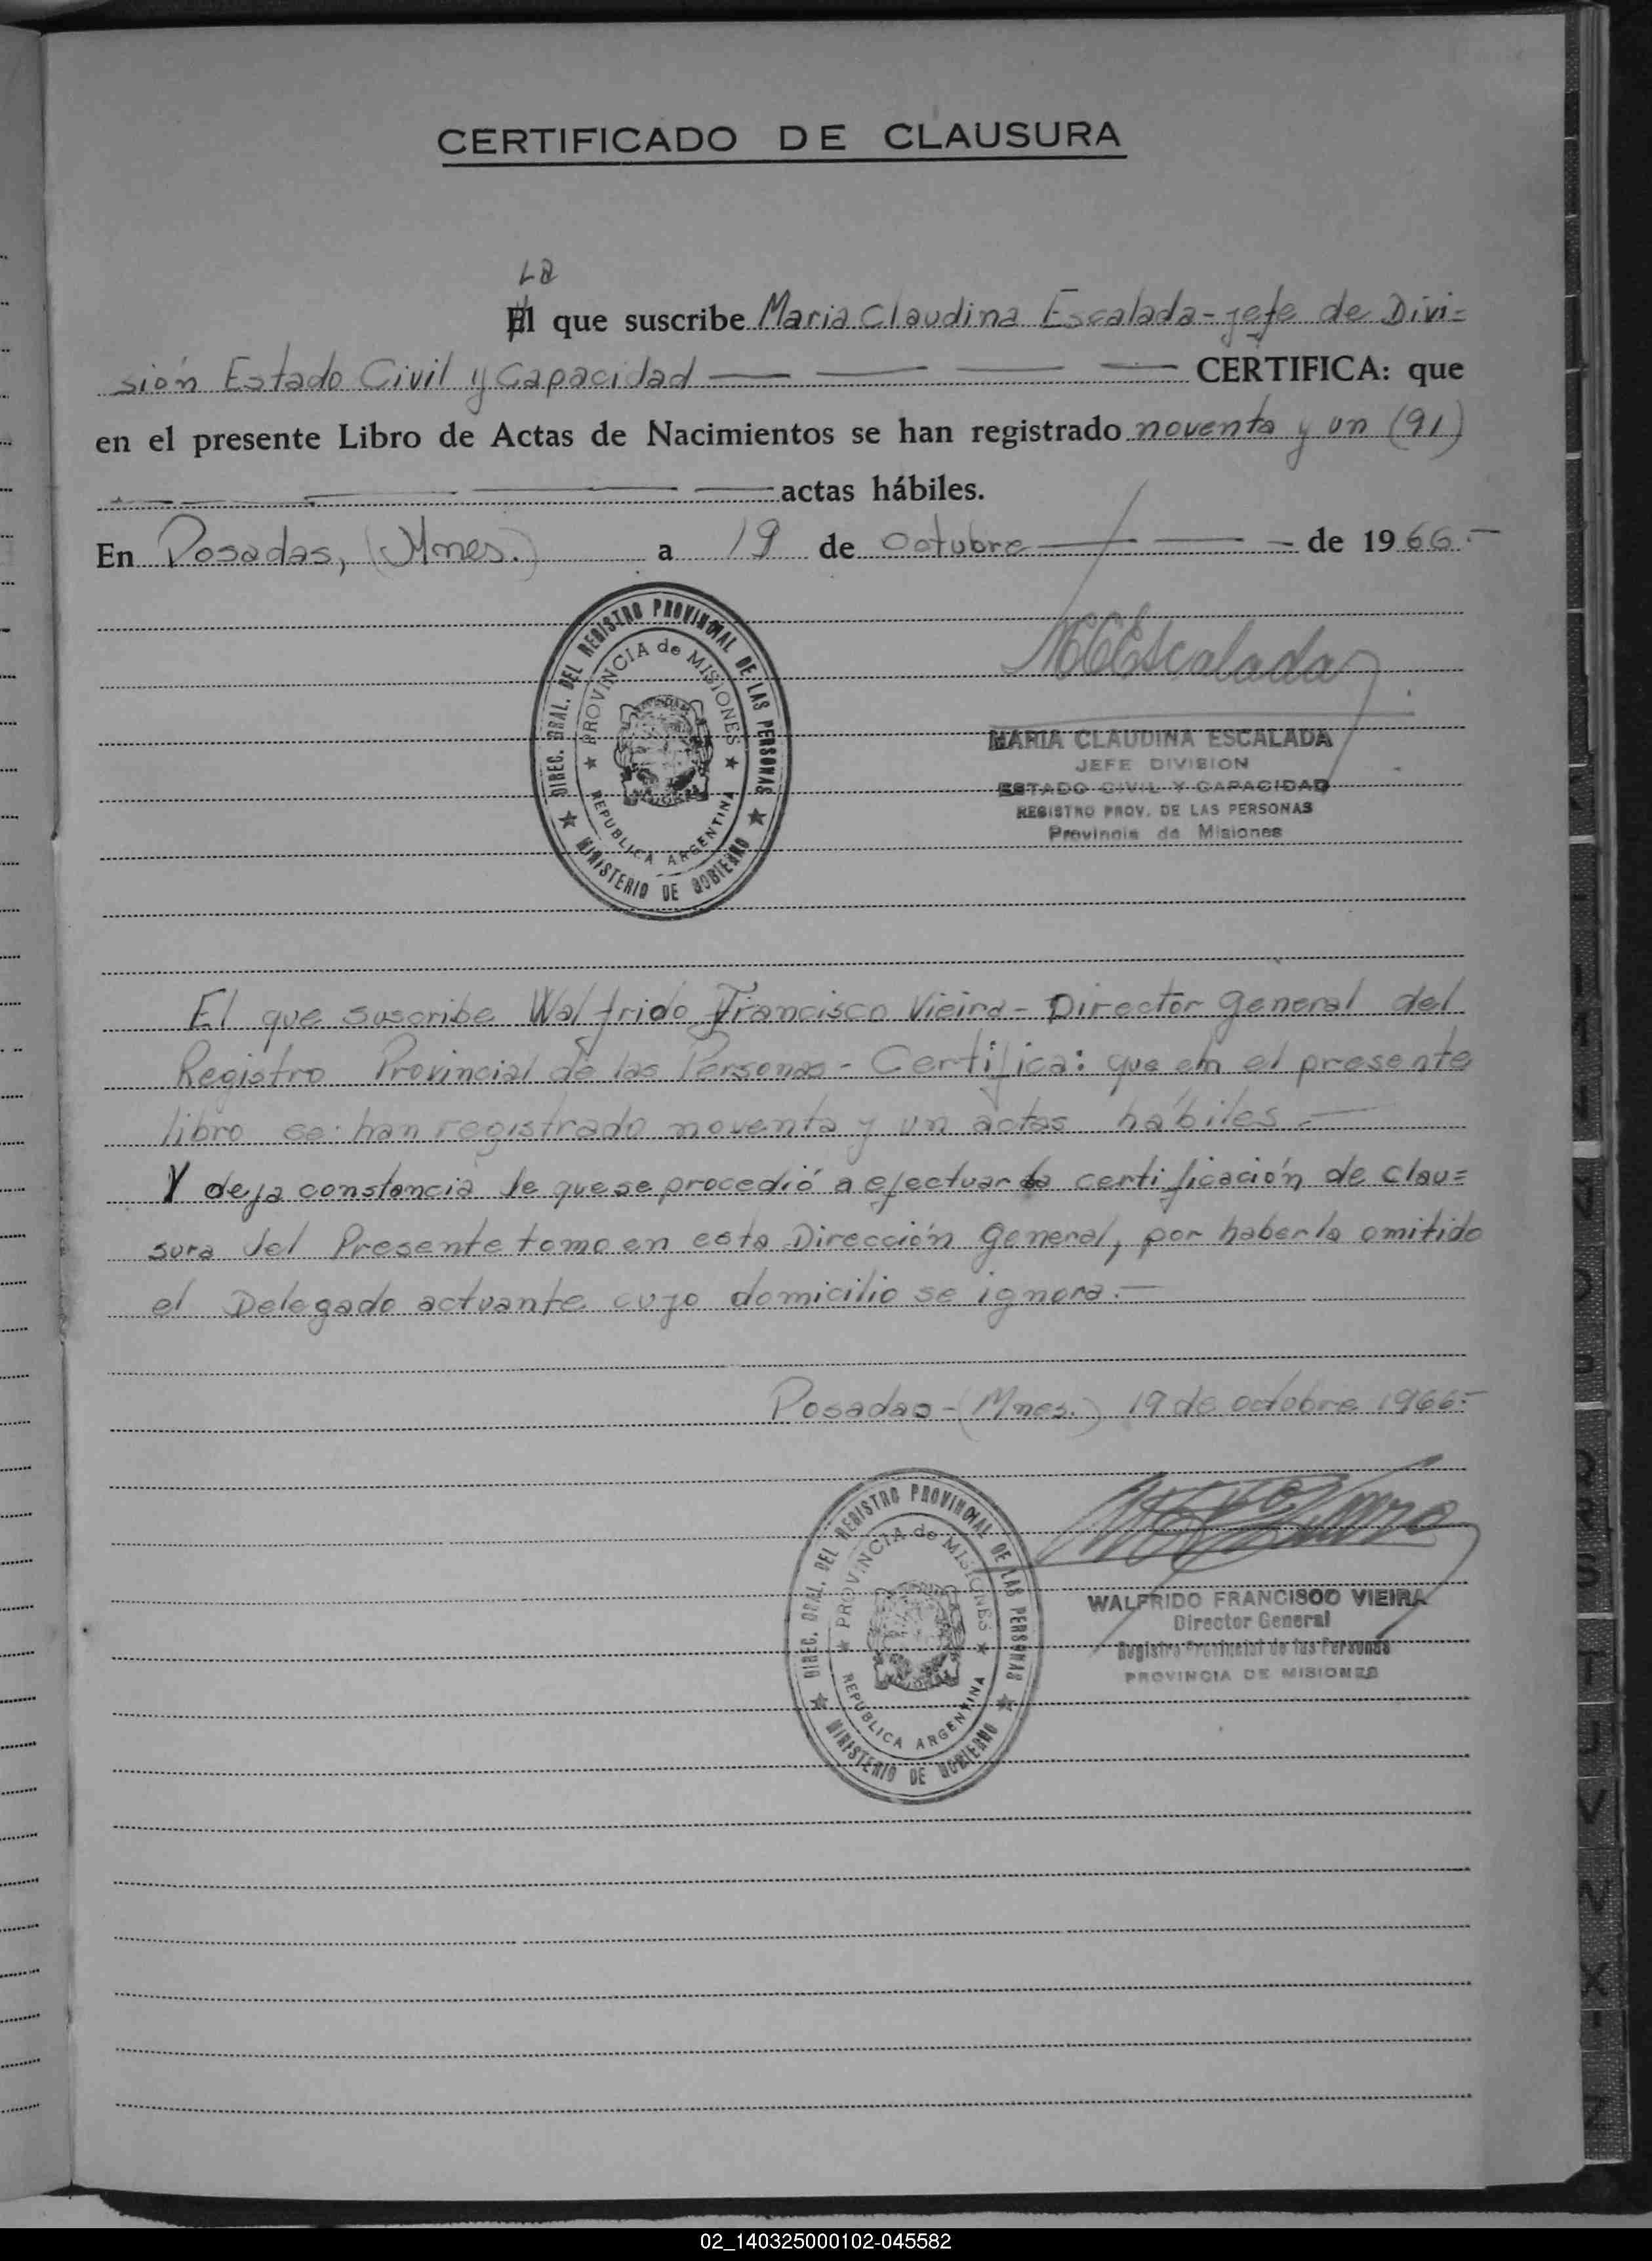 CERTIFICADO DE CLAUSURA
La
El que suscribe Maria Claudina Escalada - jefe de Divi=
sión Estado Civil y Capacidad — — — — CERTIFICA: que
en el presente Libro de Actas de Nacimientos se han registrado noventa y un (91)
— — — — — actas hábiles.
En Posadas, (Mnes.) a 19 de Octubre — — - de 1966.-
DIREC. GRAL. DEL REGISTRO PROVINCIAL DE LAS PERSONAS
PROVINCIA de MISIONES
REPUBLICA ARGENTINA
MINISTERIO DE GOBIERNO
MCEscalada
MARIA CLAUDINA ESCALADA
JEFE DIVISION
ESTADO CIVIL Y CAPACIDAD
REGISTRO PROV. DE LAS PERSONAS
Provincia de Misiones
El que suscribe Walfrido Francisco Vieira - Director General del
Registro Provincial de las Personas - Certifica: que en el presente
libro se han registrado noventa y un actas hábiles.—
Y deja constancia de que se procedió a efectuar la certificación de clau=
sura del Presente tomo en esta Dirección General, por haberla omitido
el Delegado actuante cuyo domicilio se ignora.—
Posadas - (Mnes.) 19 de octobre 1966.-
DIREC. GRAL. DEL REGISTRO PROVINCIAL DE LAS PERSONAS
PROVINCIA de MISIONES
REPUBLICA ARGENTINA
MINISTERIO DE GOBIERNO
WALFRIDO FRANCISCO VIEIRA
Director General
Registro Provincial de las Personas
PROVINCIA DE MISIONES
02_140325000102-045582